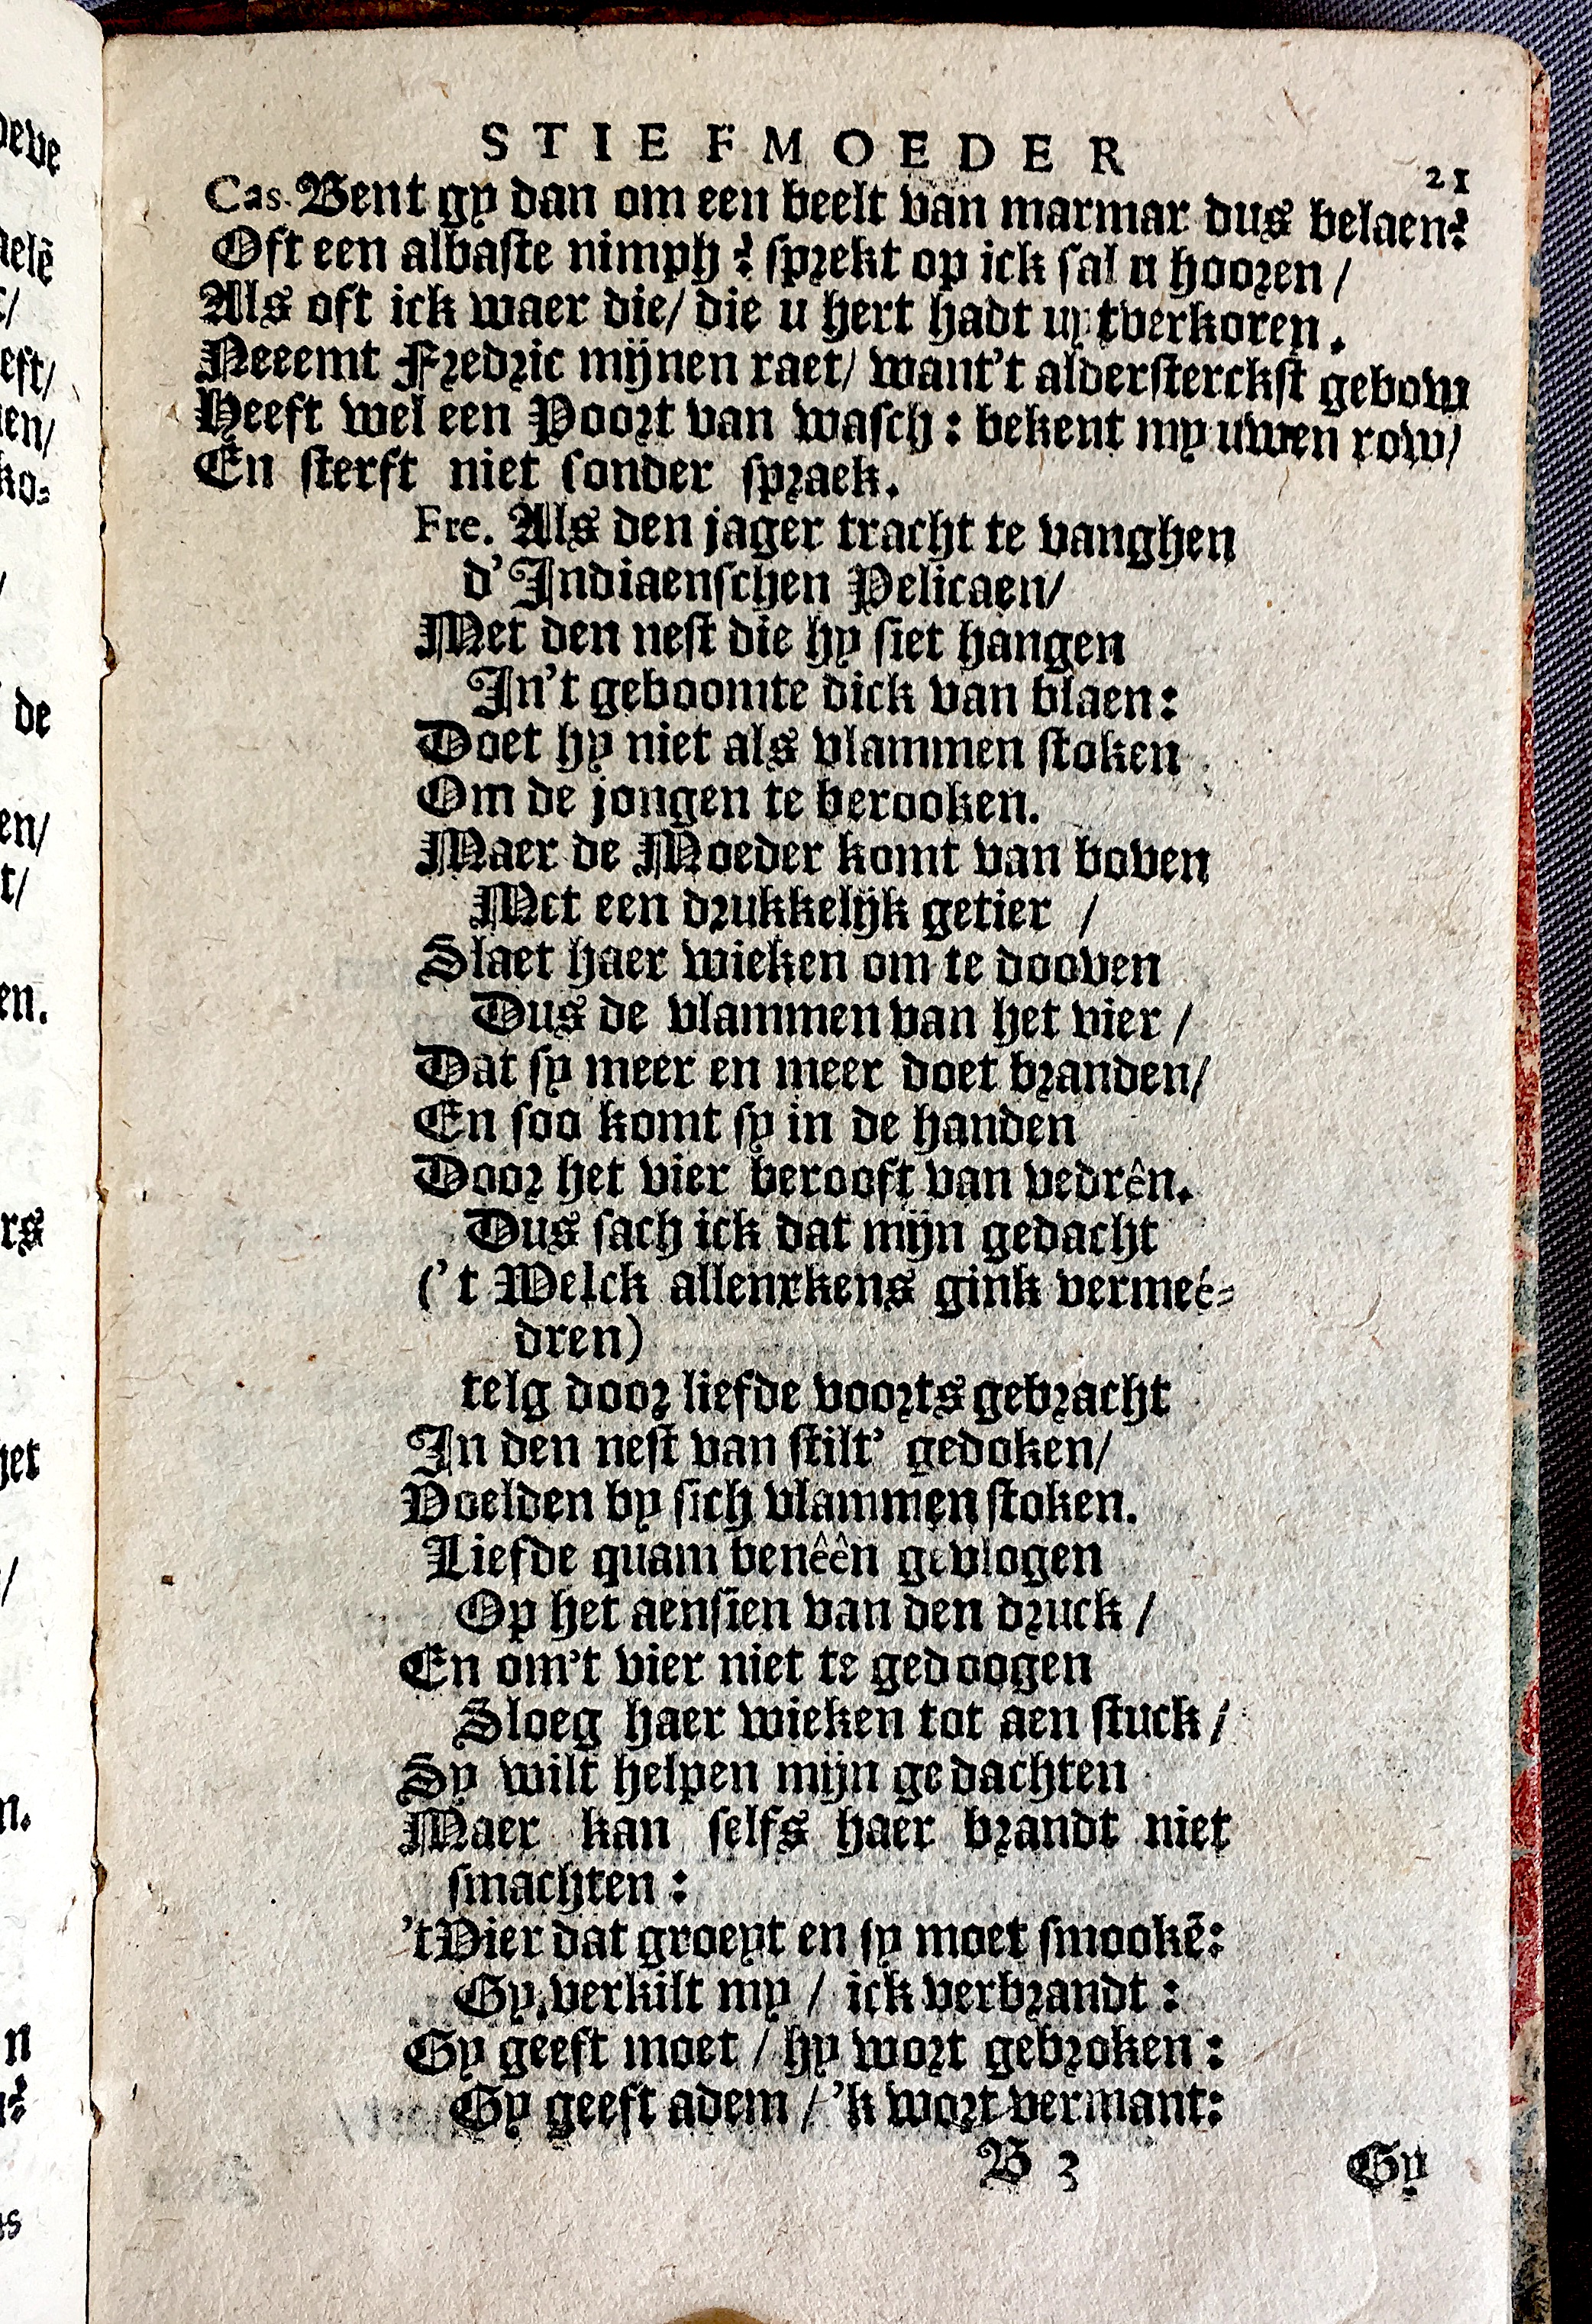 STIEFMOEDER
21
Cas. Bent gy dan om een beelt van marmar dus belaen?
Oft een albaste nimph? sprekt op ick sal u hooren /
Als oft ick waer die/ die u hert hadt uytverkoren.
Neeemt Fredric mijnen raet/ want't aldersterckst gebouw
Heeft wel een Poort van wasch: bekent my uwen row/
En sterft niet sonder spraek.
Fre. Als den jager tracht te vanghen
d'Indiaenschen Pelicaen/
Met den nest die hy siet hangen
In't geboomte dick van blaen:
Doet hy niet als vlammen stoken
Om de jongen te berooken.
Maer de Moeder komt van boven
Met een drukkelijk getier /
Slaet haer wieken om te dooven
Dus de vlammen van het vier /
Dat sy meer en meer doet branden/
En soo komt sy in de handen
Door het vier berooft van vedrên.
Dus sach ick dat mijn gedacht
('t Welck allenrkens gink vermeé-
dren)
telg door liefde voorts gebracht
In den nest van stilt' gedoken/
Voelden by sich vlammen stoken.
Liefde quam benêên gevlogen
Op het aensien van den druck /
En om't vier niet te gedoogen
Sloeg haer wieken tot aen stuck /
Sy wilt helpen mijn gedachten
Maer kan selfs haer brandt niet
smachten:
'tVier dat groeyt en sy moet smookē:
Gy, verkilt my / ick verbrandt:
Gy geeft moet / hy wort gebroken:
Gy geeft adem / 'k wort vermant:
B 3 Gy